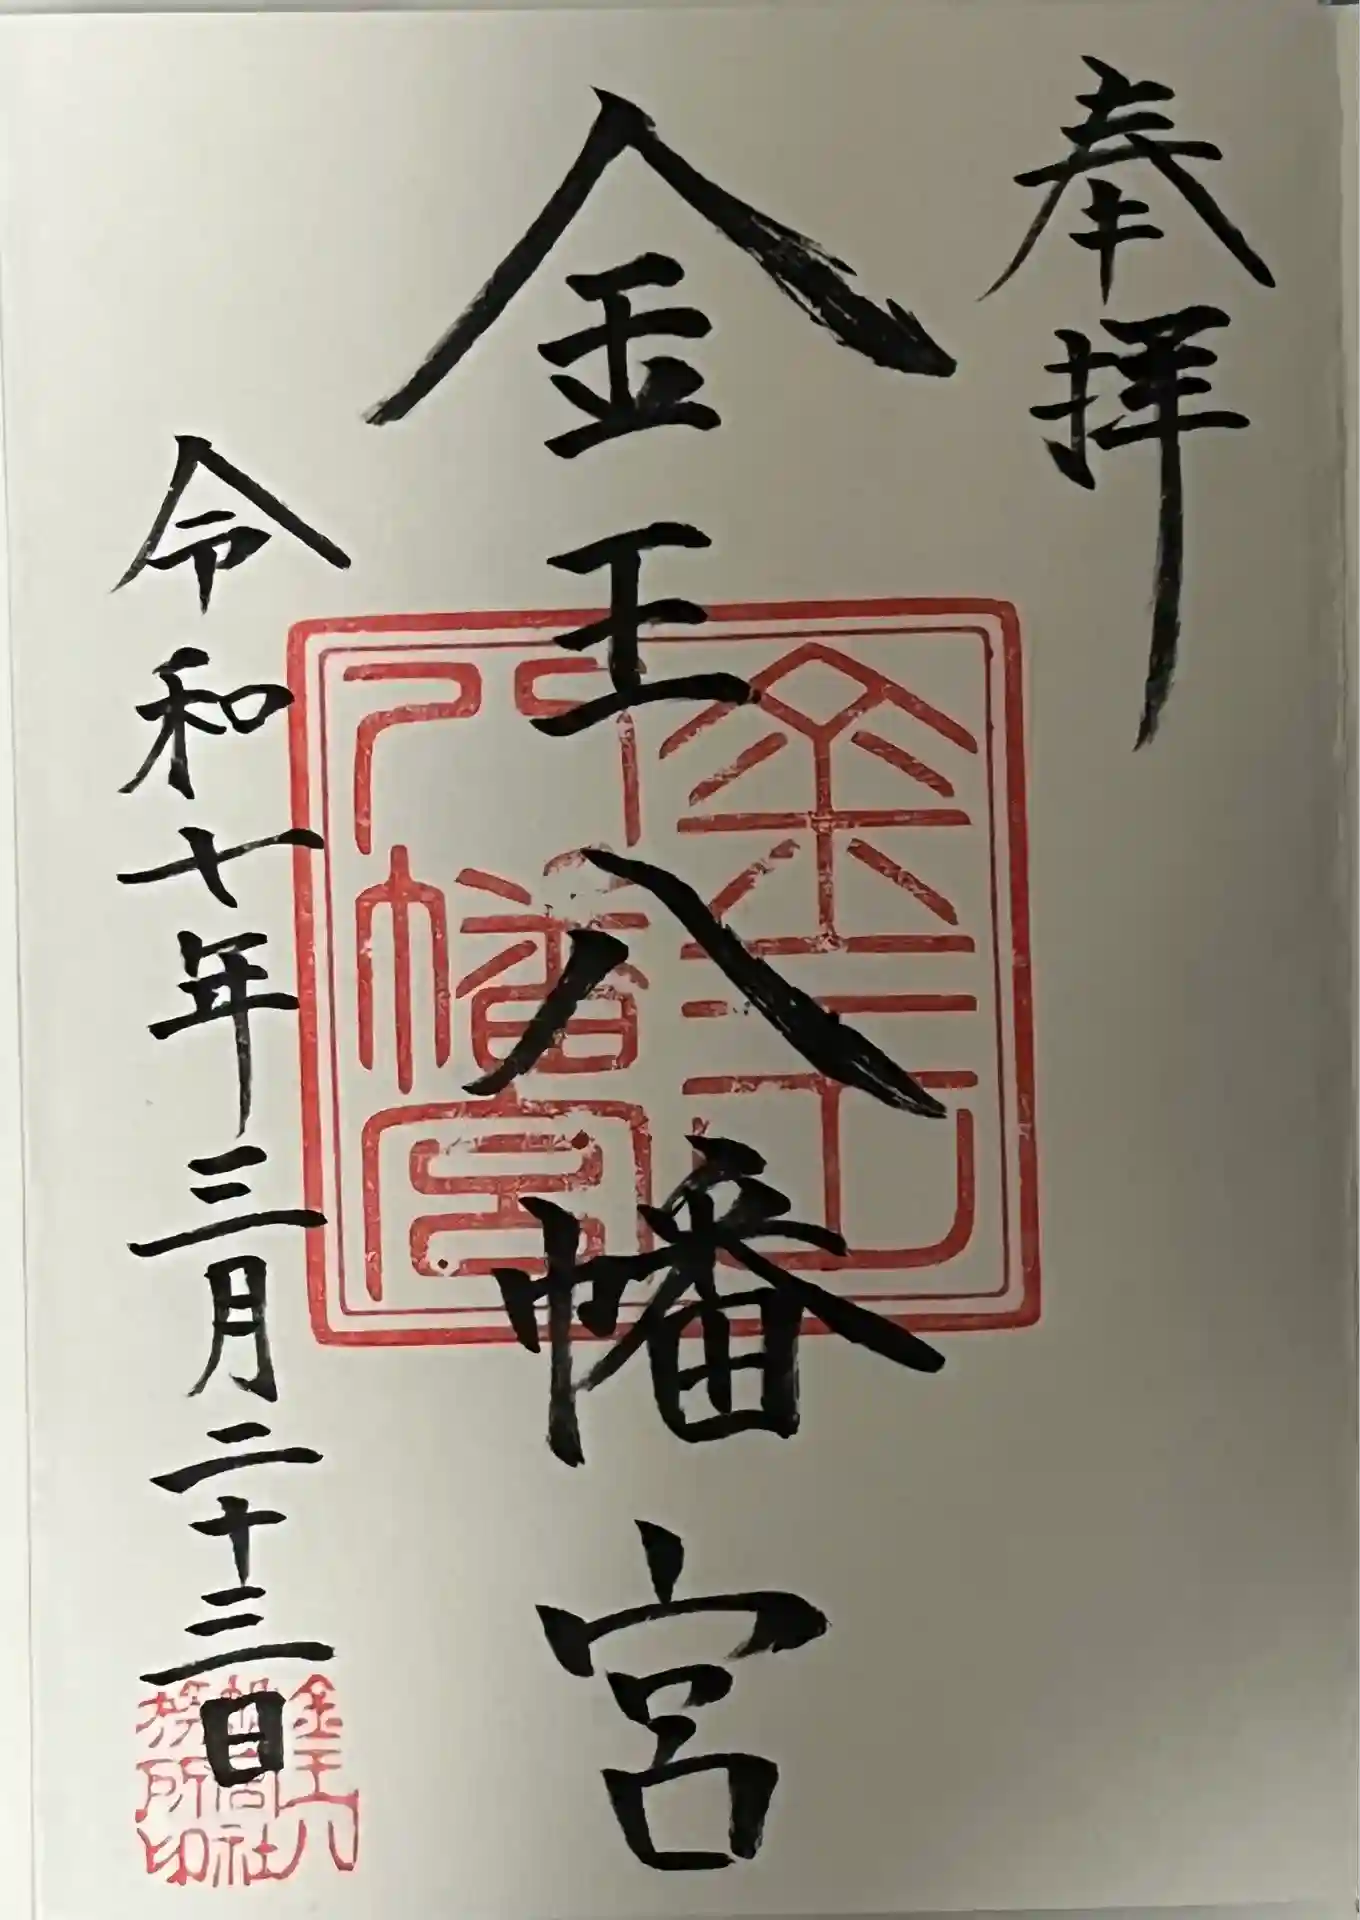 奉拝
金王八幡宮
令和七年三月二十三日
金王八幡宮
金王八幡宮社務所印